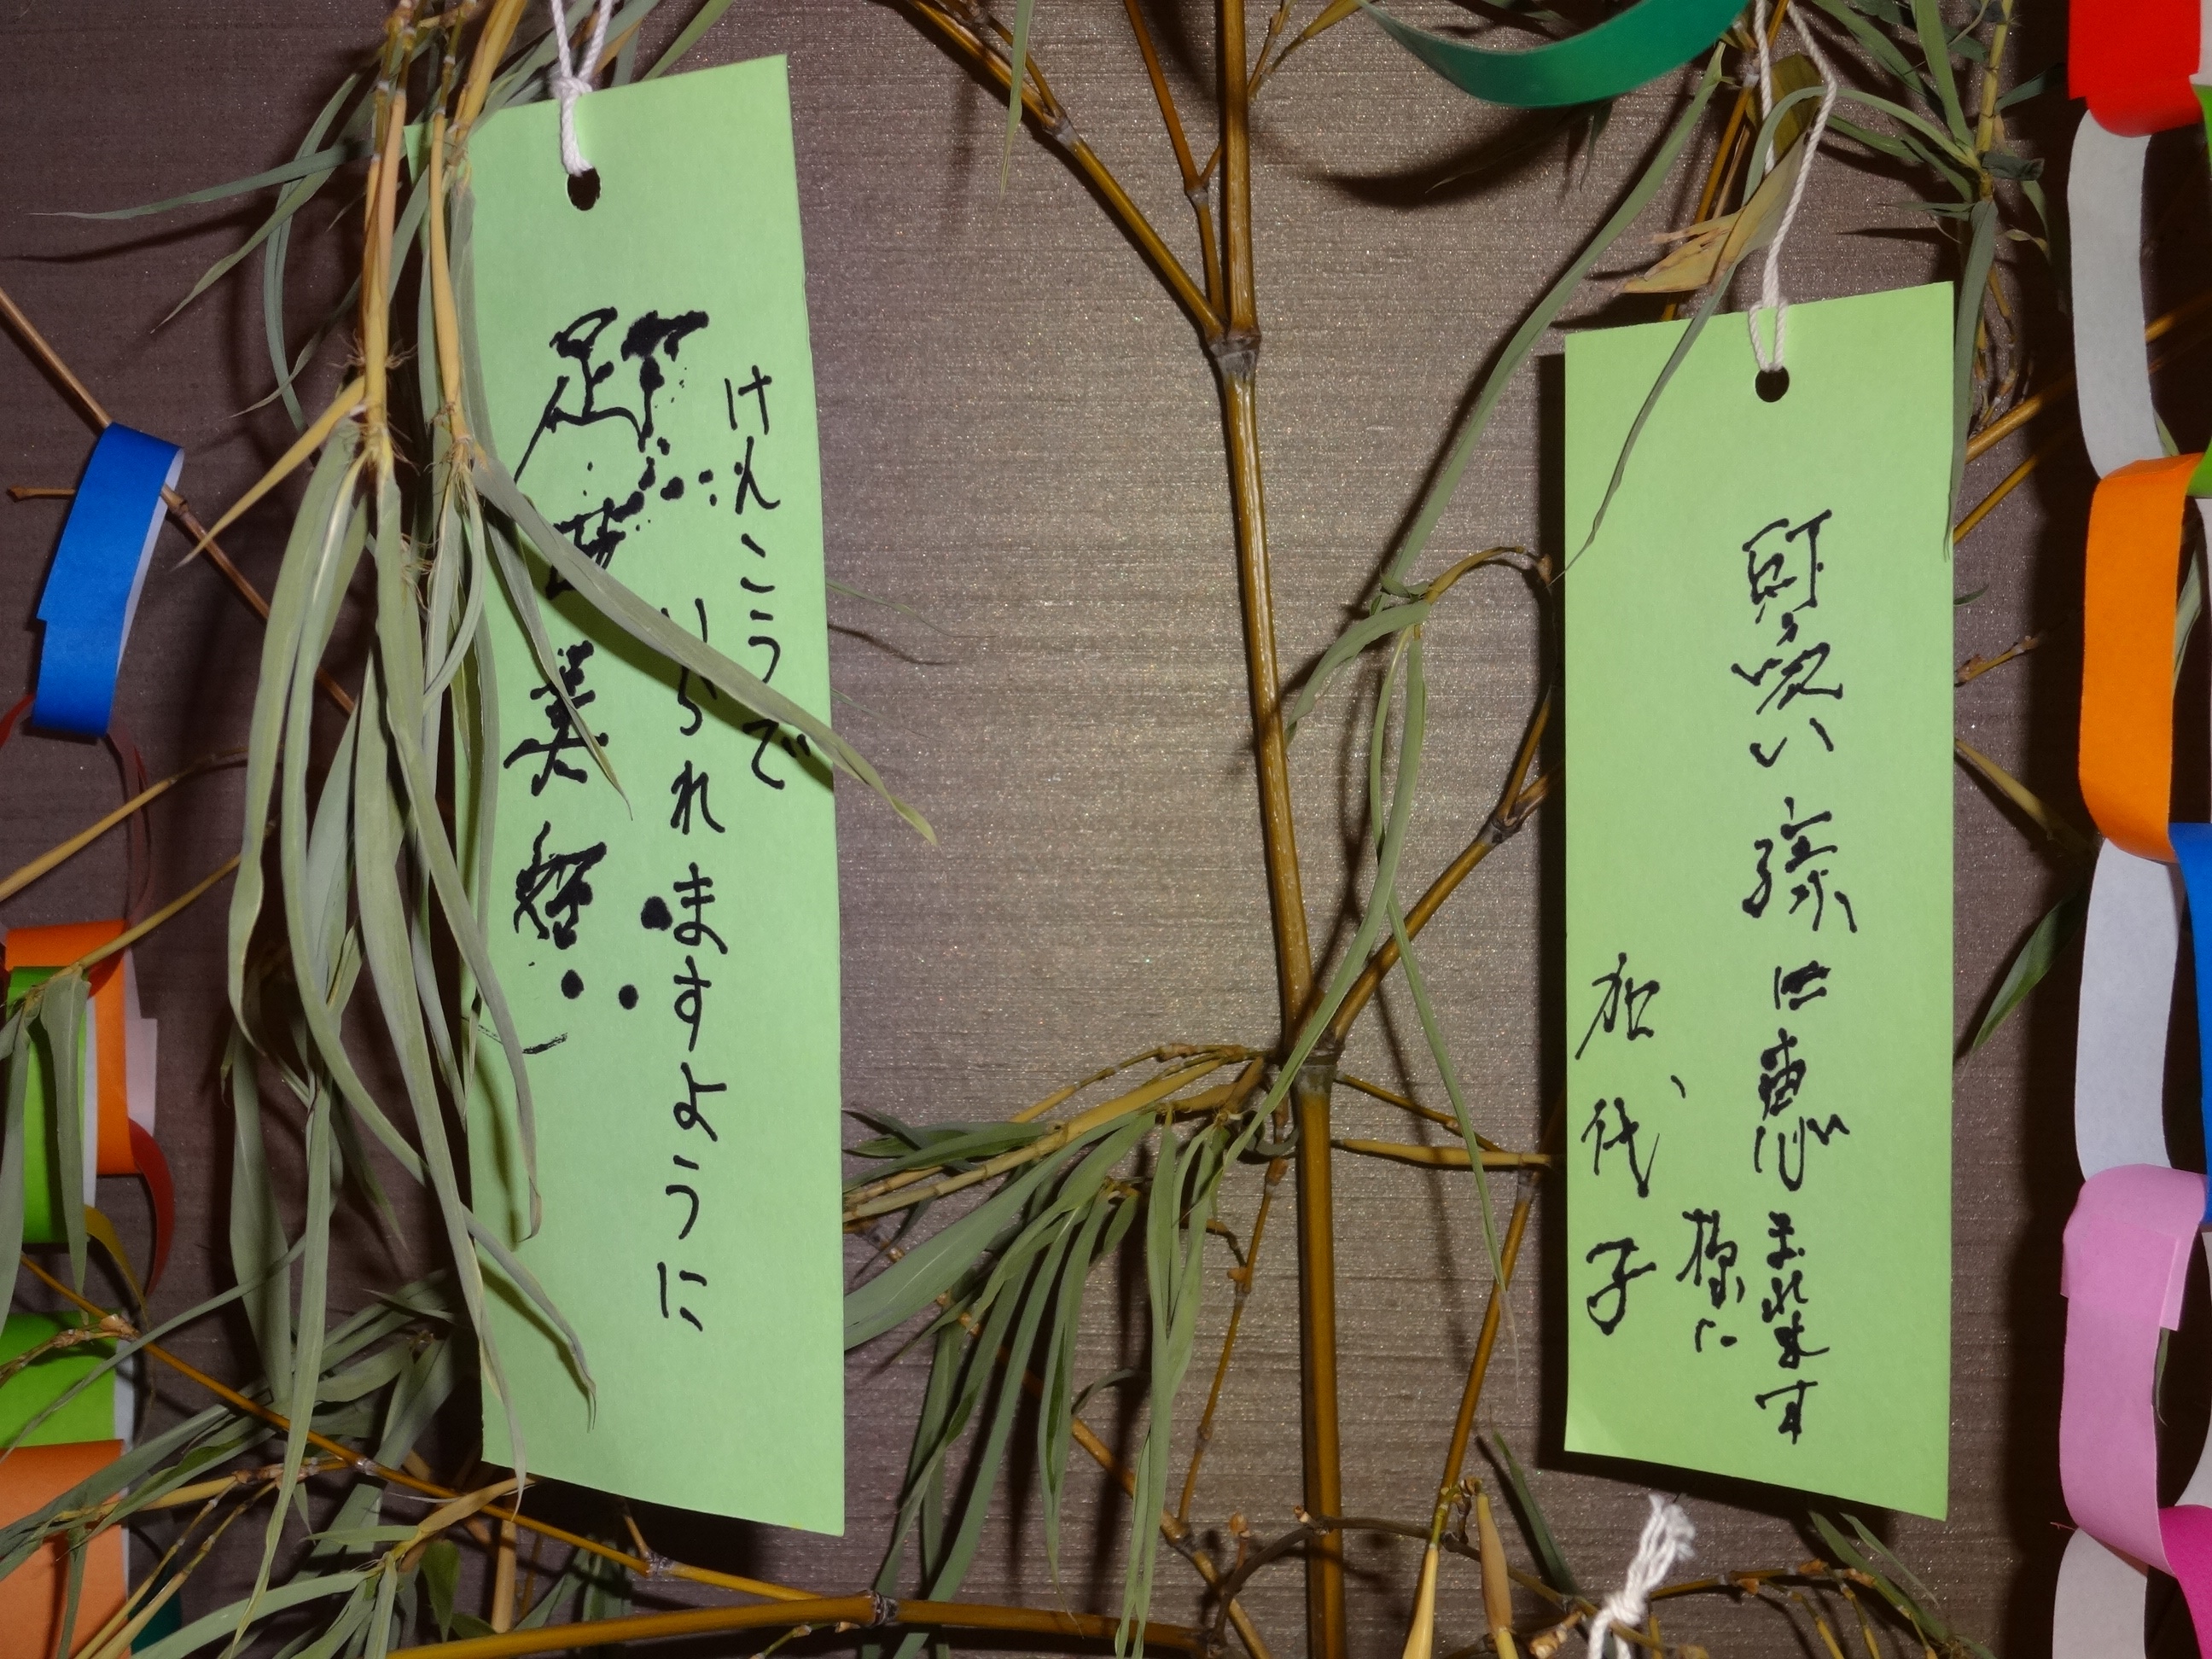 けんこうで
いられますように
美
可愛い孫に恵まれます
様に
加代子